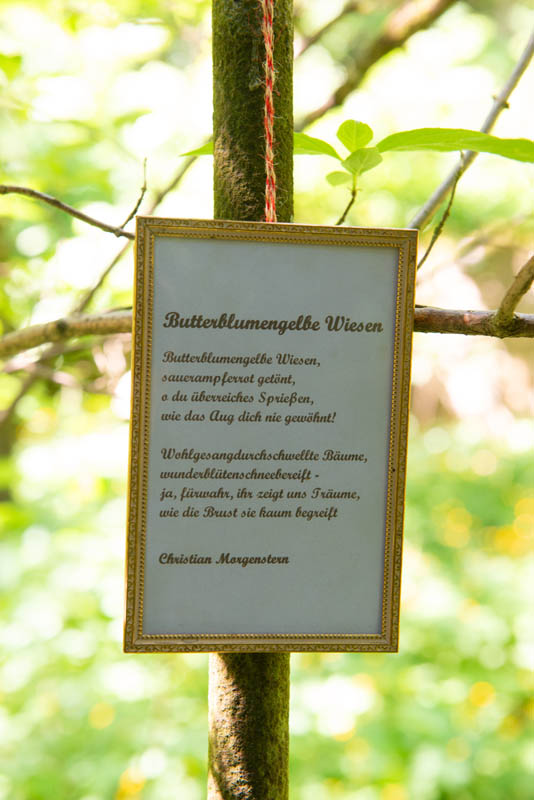 Butterblumengelbe Wiesen
Butterblumengelbe Wiesen,
sauerampferrot getönt,
o du überreiches Sprießen,
wie das Aug dich nie gewöhnt!
Wohlgesangdurchschwellte Bäume,
wunderblütenschneebereift -
ja, fürwahr, ihr zeigt uns Träume,
wie die Brust sie kaum begreift
Christian Morgenstern